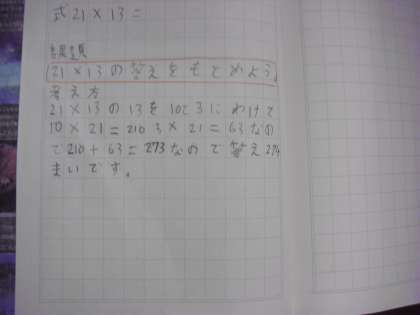 式 21×13=
課題
21×13の答えをもとめよう
考え方
21×13の13を10と3にわけて
10×21=210 3×21=63なの
で210+63=273なので答え 273
まいです。